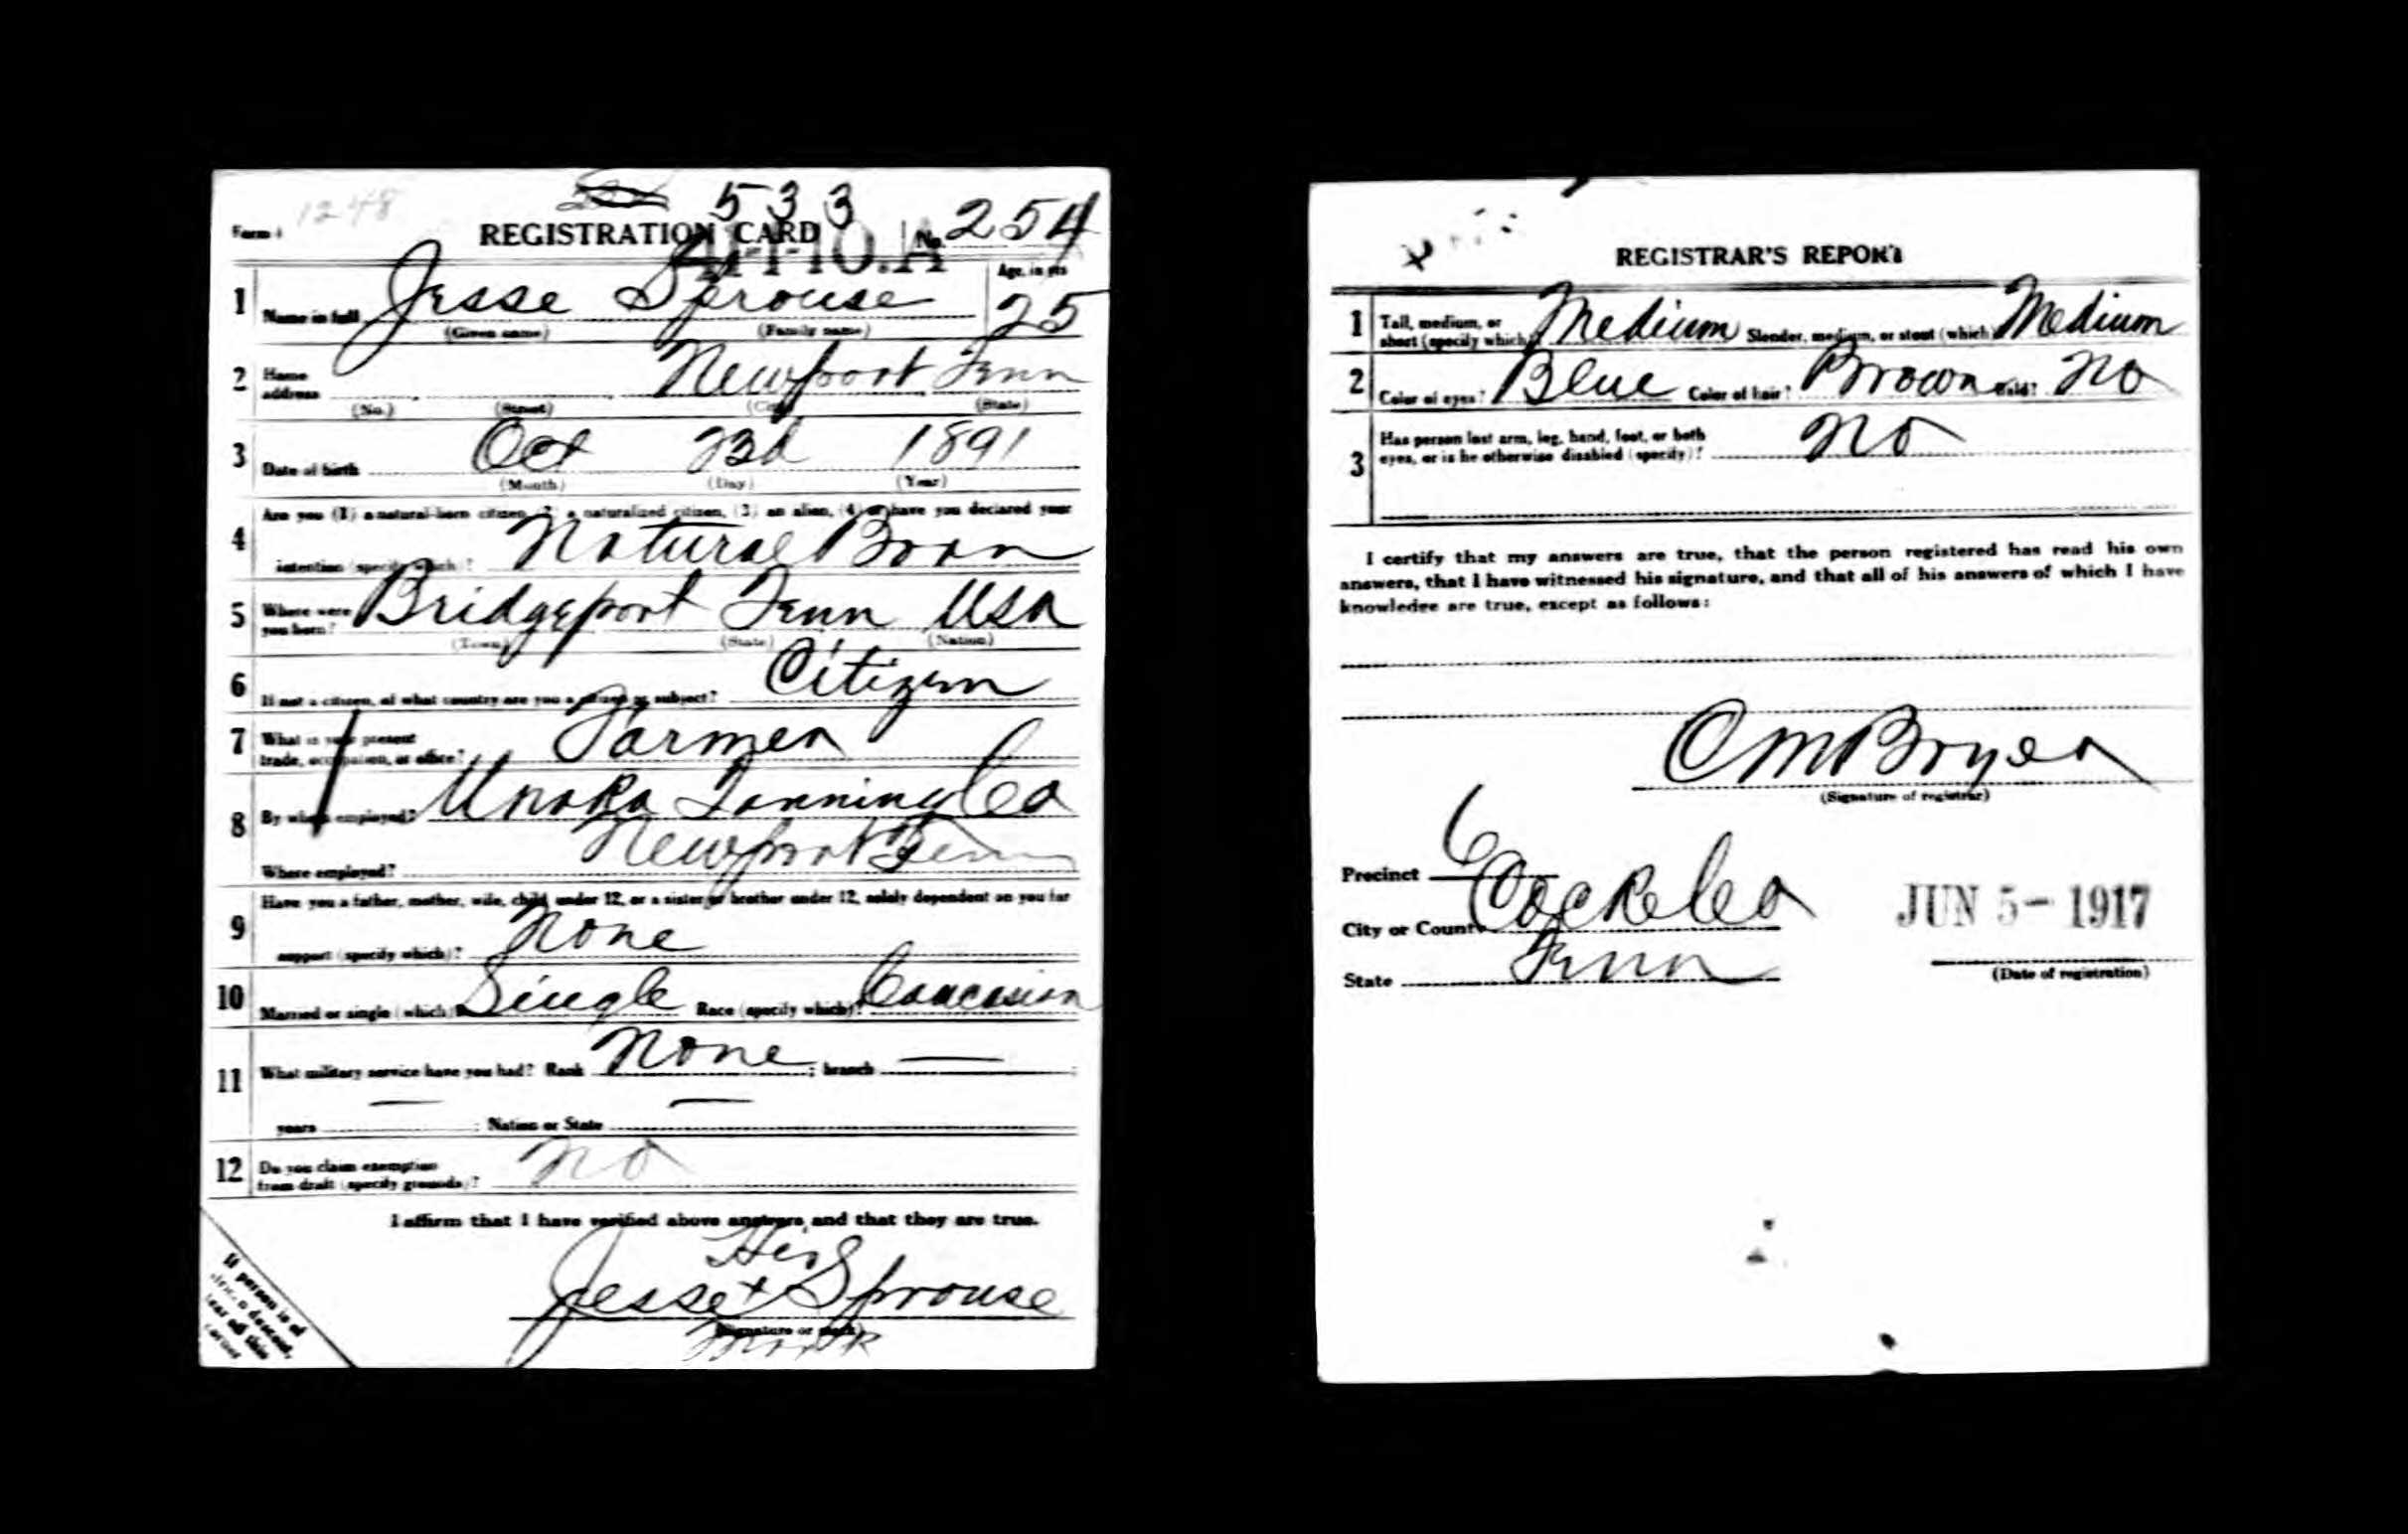 Form 1 1248 533
REGISTRATION CARD No. 254
41-1-10.A
1 Name in full Jesse Sprouse Age, in yrs 25
(Given name) (Family name)
2 Home address Newport Tenn
(No.) (Street) (City) (State)
3 Date of birth Oct 23d 1891
(Month) (Day) (Year)
4 Are you (1) a natural-born citizen, (2) a naturalized citizen, (3) an alien, (4) or have you declared your
intention (specify which)? Natural Born
5 Where were you born? Bridgeport Tenn USA
(Town) (State) (Nation)
6 If not a citizen, of what country are you a citizen or subject? Citizen
7 What is your present
trade, occupation, or office? Farmer
8 By whom employed? Unaka Tanning Co
Where employed? Newport Tenn
9 Have you a father, mother, wife, child under 12, or a sister or brother under 12, solely dependent on you for
support (specify which)? None
10 Married or single (which)? Single Race (specify which)? Caucasian
11 What military service have you had? Rank None ; branch — ;
years — ; Nation or State —
12 Do you claim exemption
from draft (specify grounds)? No
I affirm that I have verified above answers and that they are true.
His
Jesse x Sprouse
(Signature or mark)
Mark
If person is of
African descent,
tear off this
corner
REGISTRAR'S REPORT
1 Tall, medium, or
short (specify which)? Medium Slender, medium, or stout (which)? Medium
2 Color of eyes? Blue Color of hair? Brown Bald? No
3 Has person lost arm, leg, hand, foot, or both
eyes, or is he otherwise disabled (specify)? No
I certify that my answers are true, that the person registered has read his own
answers, that I have witnessed his signature, and that all of his answers of which I have
knowledge are true, except as follows:
(Signature of registrar)
Precinct 6
City or County Cocke Co JUN 5- 1917
State Tenn (Date of registration)